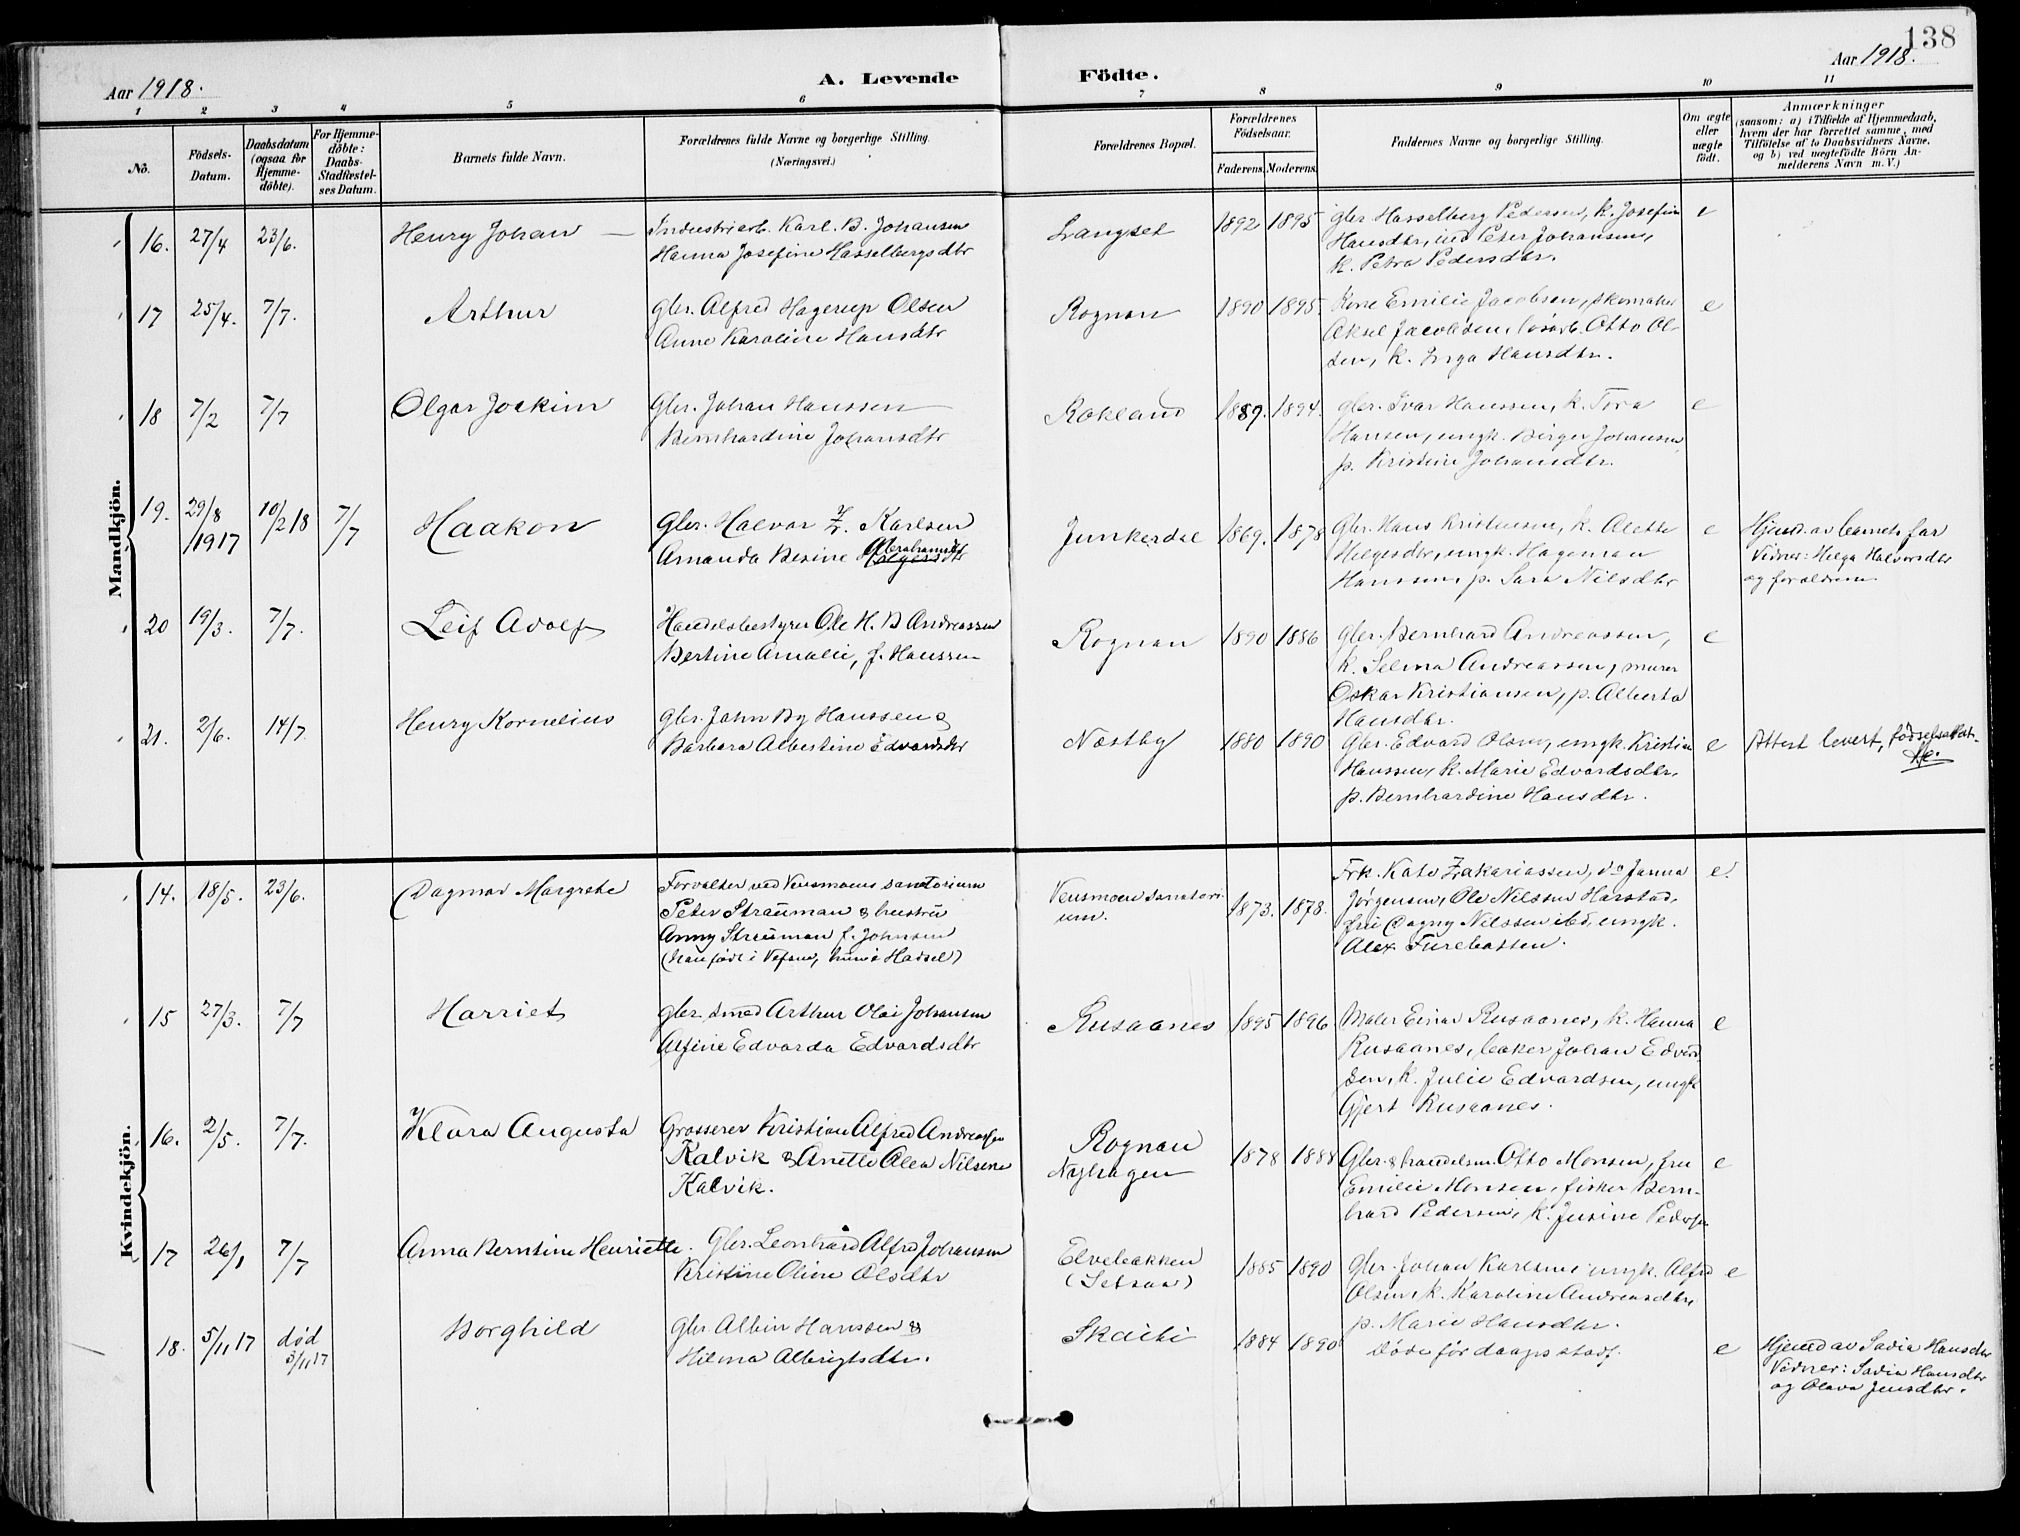 138
Aar 1918.
A. Levende Födte.
Aar 1918.
1 2 3 4 5 6 7 8 9 10 11
No.
Födsels-
Datum.
Daabsdatum
(ogsaa for
Hjemme-
döbte).
For Hjemme-
döbte:
Daabs-
Stadfæstel-
ses Datum.
Barnets fulde Navn.
Forældrenes fulde Navne og borgerlige Stilling.
(Næringsvei.)
Forældrenes Bopæl.
Forældrenes
Födselsaar.
Faderens. Moderens.
Faddernes Navne og borgerlige Stilling.
Om ægte
eller
uægte
födt.
Anmærkninger
(saasom: a) i Tilfælde af Hjemmedaab,
hvem der har forrettet samme, med
Tilföielse af to Daabsvidners Navne,
og b) ved uægtefödte Börn An-
melderens Navn m. V.)
Mandkjön.
16. 27/4 23/6. Henry Johan
Industriarb. Karl. B. Johansen
Hanna Josefine Hasselbergsdtr
Langset 1892 1895
gbr Hasselberg Pedersen, k. Josefine
Hansdtr, inds Peter Johansen,
k. Petra Pedersdtr.
e
17 25/4. 7/7. Arthur
gbr. Alfred Hagerup Olsen
Anne Karoline Hansdtr
Rognan 1890 1895.
Kone Emilie Jacobsen, skomaker
Aksel Jacobsen, løsarb. Otto Ol-
sen, k. Inga Hansdtr.
e
18 7/2 7/7 Olgar Joakim
Gbr. Johan Hanssen
Bernhardine Johansdtr
Rokland 1889. 1894.
gbr. Ivar Hanssen, k. Tora
Hansen, ungk. Birger Johansen
p. Kristine Johansdtr.
e
19. 29/8 /1917 10/2 18 7/7 Haakon
Gbr. Halvor Z. Karlsen
Amanda Besine Abrahamsdtr
Junkerdal 1869. 1878
Gbr. Hans Kristensen, k. Alette
Helgesdtr, ungk. Hageman
Hanssen, p. Sara Nilsdtr
e
Hjemd. av barnets far
Vidner: Helga Halvorsdtr
og forældrene.
20 19/3. 7/7. Leif Adolf
Handelsbestyrer Ole H. B Andreassen
Bertine Amalie, f. Hanssen
Rognan 1890 1886
gbr. Bernhard Andreassen,
k. Selma Andreassen, murer
Oskar Kristiansen, p. Alberta
Hansdtr.
e
21. 2/6. 14/7. Henry Kornelius
gbr. John By Hanssen &
Barbara Albertine Edvardsdtr
Næstby 1880 1890
Gbr. Edvard Olsen, ungk. Kristian
Hanssen, k. Marie Edvardsdtr,
p. Bernhardine Hansdtr.
e
Attest levert, fødselsatt-
Kvindekjön.
14. 18/5. 23/6. Dagmar Margrethe
Forvalter ved Vensmoens sanatorium
Peter Strauman & hustru
Anny Strauman f. Johnsen
(han født i Vefsen, hun i Hadsel)
Vensmoen sanatori-
um.
1873. 1878.
Frk. Kate Zakariassen, do Janna
Jørgensen, Ole Nilssen Harstad,
fru Dagny Nilssen ibd, ungk.
Alex Furebotten.
e.
15 27/3. 7/7 Harriet
gbr. smed Arthur Olai Johansen
Alfine Edvarda Edvardsdtr
Rusaanes 1895 1896
Maler Einar Rusaanes, k. Hanna
Rusaanes, baker Johan Edvard
sen, k. Julie Edvardsen, ungk
Gjert Rusaanes.
e
16. 2/5. 7/7. Klara Augusta
Grosserer Kristian Alfred Andreassen
Kalvik & Anette Olea Nilsene
Kalvik.
Rognan
Nyhagen
1878 1888
Gbr. & handelsm. Otto Monsen, fru
Emilie Monsen, fisker Bern-
hard Pedersen, k. Jusine Pedersen
e
17 26/1 7/7 Anna Berntine Henriette.
Gbr. Leonhard Alfred Johansen
Kristine Oline Olsdtr
Elvebakken
(Setsaa)
1885 1890
Gbr. Johan Karlsen, ungk. Alfred
Olsen, k. Karoline Andreasdtr,
p. Marie Hansdtr.
e
18. 5/11 17 død
5/11 17
Borghild
Gbr Albin Hanssen &
Hilma Albrigtsdtr.
Skaiti 1884 1890
Døde før daapsstadf.
e
Hjemd av Sadia Hansdtr
Vidner: Sadia Hansdtr
og Olava Jensdtr.